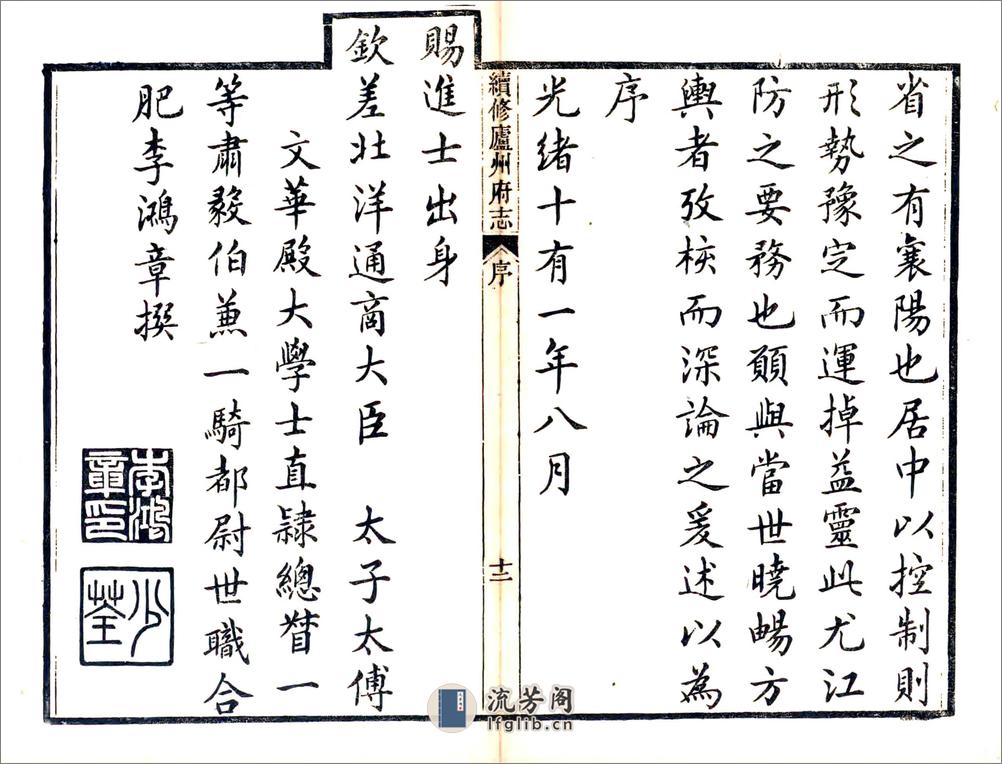 省之有襄陽也居中以控制則
形勢豫定而運掉益靈此尤江
防之要務也願與當世曉暢方
輿者攷核而深論之爰述以為
序
光緒十有一年八月
續修廬州府志
序
十二
賜進士出身
欽差北洋通商大臣 太子太傅
文華殿大學士直隸總督一
等肅毅伯兼一騎都尉世職合
肥李鴻章撰
李鴻章印
少荃
流芳阁
lfglib.cn